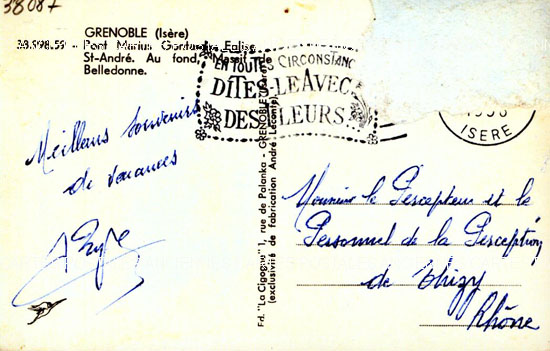 38087
GRENOBLE (Isère)
38.998.59 - Pont Marius Gontard - Eglise
St-André. Au fond, Massif de
Belledonne.
EN TOUTES CIRCONSTANC
DITES-LE AVEC
DES FLEURS
1958
ISERE
Meilleurs souvenirs
de vacances
Ed. "La Cigogne" 1, rue de Palanka - GRENOBLE (Isère)
(exclusivité de fabrication André Leconte)
Monsieur le Percepteur et le
Personnel de la Perception
de Thizy
Rhône